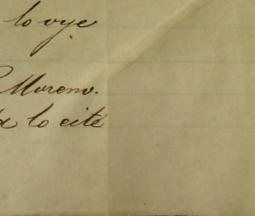 lo oye
Moreno.
lo cité